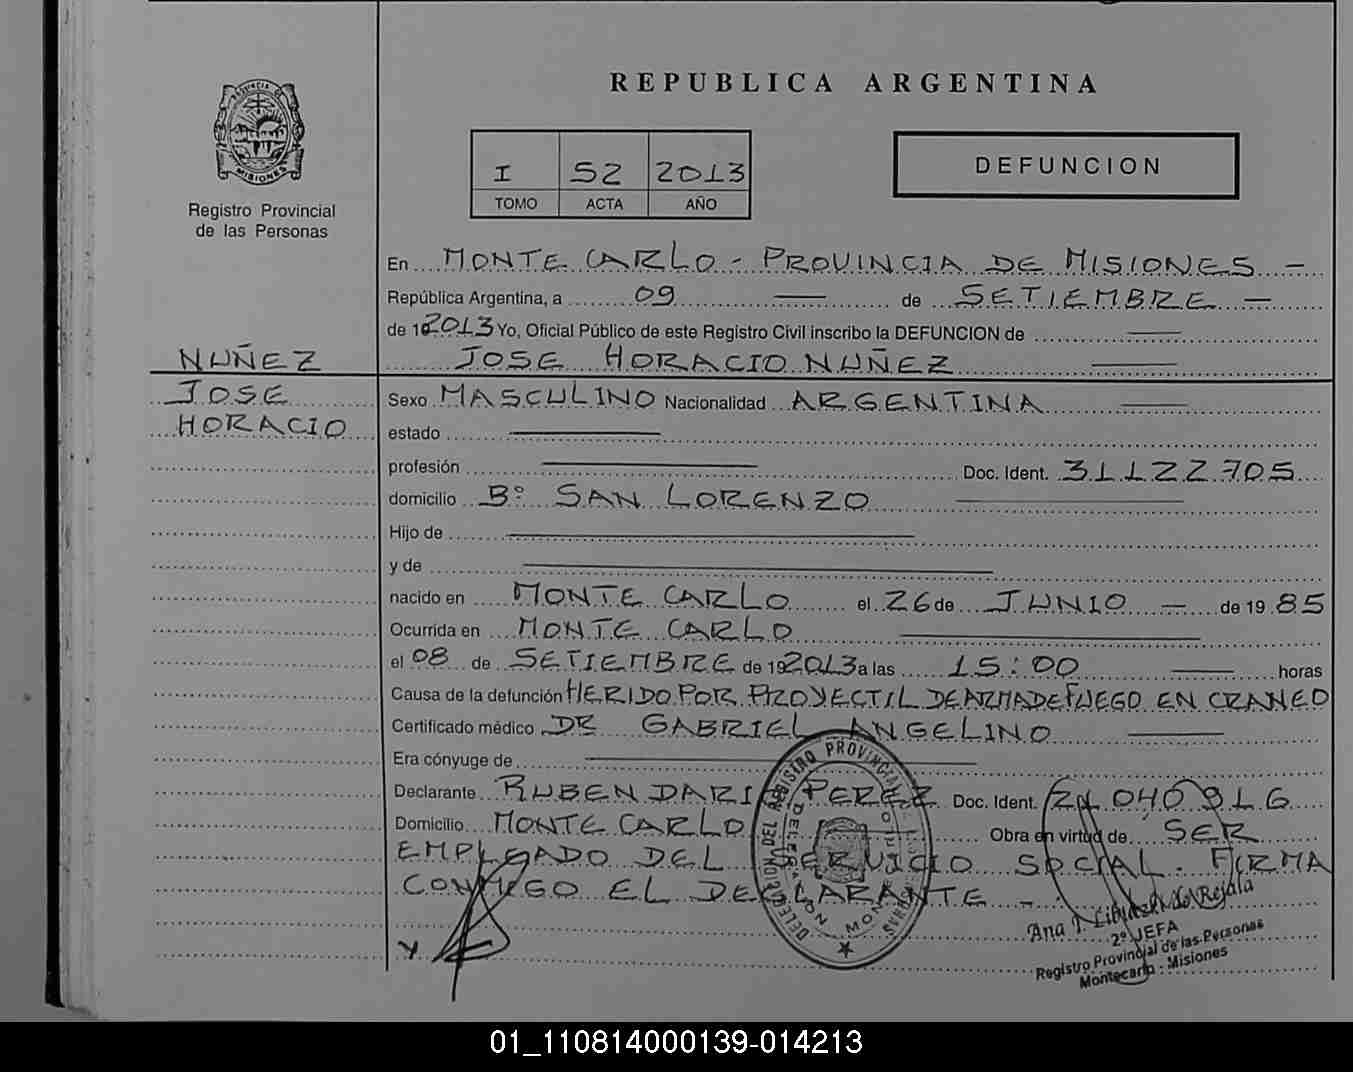 REPUBLICA ARGENTINA
PROVINCIA DE
MISIONES
Registro Provincial
de las Personas
I 52 2013
TOMO ACTA AÑO
DEFUNCION
En MONTE CARLO - PROVINCIA DE MISIONES -
República Argentina, a 09 — de SETIEMBRE —
de 2013 Yo, Oficial Público de este Registro Civil inscribo la DEFUNCION de —
JOSE HORACIO NUÑEZ —
NUÑEZ
JOSE
HORACIO
Sexo MASCULINO Nacionalidad ARGENTINA —
estado —
profesión — Doc. Ident. 31122705
domicilio Bº SAN LORENZO —
Hijo de —
y de —
nacido en MONTE CARLO el 26 de JUNIO — de 1985
Ocurrida en MONTE CARLO —
el 08 de SETIEMBRE de 192013 a las 15:00 — horas
Causa de la defunción HERIDO POR PROYECTIL DE ARMA DE FUEGO EN CRANEO
Certificado médico DR GABRIEL ANGELINO —
Era cónyuge de —
Declarante RUBEN DARIO PEREZ Doc. Ident.
Domicilio MONTE CARLO Obra en virtud de SER
EMPLEADO DEL SERVICIO SOCIAL. FIRMA
CONMIGO EL DECLARANTE -
DELEGACION DEL REGISTRO PROVINCIAL
Ana
2º JEFA
Registro Provincial de las Personas
Montecarlo - Misiones
01_110814000139-014213